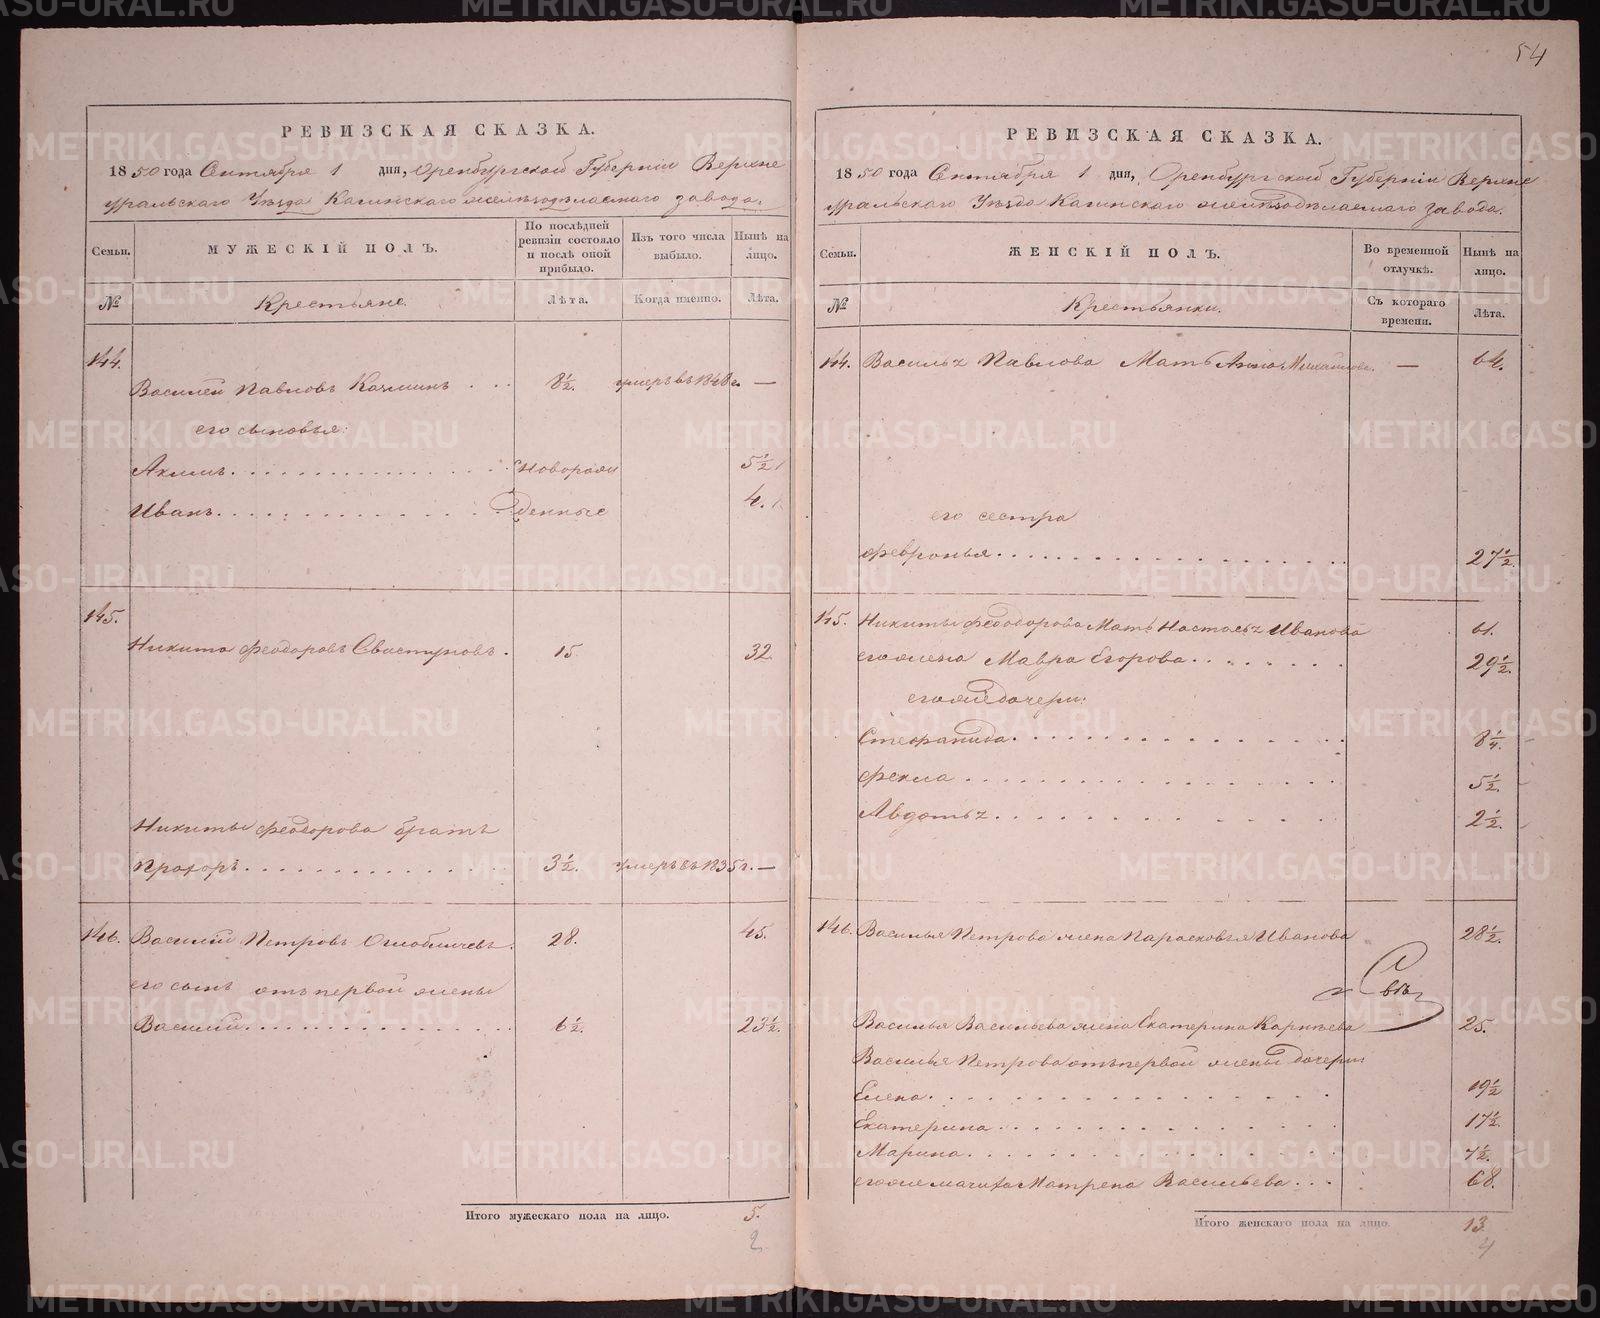 54
РЕВИЗСКАЯ СКАЗКА.
1850 года Сентября 1 дня, Оренбургской Губернiи Верхне
уральскаго Уѣзда Кагинскаго желѣзодѣлаемаго завода.
Семьи.
МУЖЕСКIЙ ПОЛЪ.
По послѣдней ревизiи состояло и послѣ оной прибыло.
Изъ того числа выбыло.
Нынѣ на лицо.
№
Крестьяне.
Лѣта.
Когда именно.
Лѣта.
144.
Василей Павловъ Казминъ . . . 8½. умеръ въ 1848 г. —
его сыновья:
Акимъ. . . . новорож 5½
Иванъ. . . . денные 4.
145.
Никита Феодоровъ Свистуновъ. 15. 32.
Никиты Феодорова братъ
Прохоръ. . . . 3½. умеръ въ 1835 г. —
146. Василiй Петровъ Оглобличевъ. 28. 45.
его сынъ отъ первой жены
Василiй. . . . 6½. 23½.
Итого мужескаго пола на лицо. 5.
2
РЕВИЗСКАЯ СКАЗКА.
1850 года Сентября 1 дня, Оренбургской Губернiи Верхне
уральскаго Уѣзда Кагинскаго желѣзодѣлаемаго завода.
Семьи.
ЖЕНСКIЙ ПОЛЪ.
Во временной отлучкѣ.
Нынѣ на лицо.
№
Крестьянки.
Съ котораго времени.
Лѣта.
144. Васильz Павлова Мать Анна Михайлова. — 64.
его сестра
Февронья. . . . 27½.
145. Никиты Феодорова Мать Настасьz Иванова 61.
его жена Мавра Егорова. . . . 29½.
его же дочери:
Стефанида. . . . 8¼.
Фекла . . . . 5½.
Авдотьz. . . . 2½.
146. Василья Петрова жена Парасковья Иванова 28½.
Василья Васильева жена Екатерина Карпѣева 25.
Василья Петрова отъ первой жены дочери:
Елена. . . . 19½
Екатерина. . . . 17½.
Марина. . . . 7½.
его же мачиха Матрена Васильева. . . 68.
Итого женскаго пола на лицо. 13.
4
METRIKI.GASO-URAL.RU